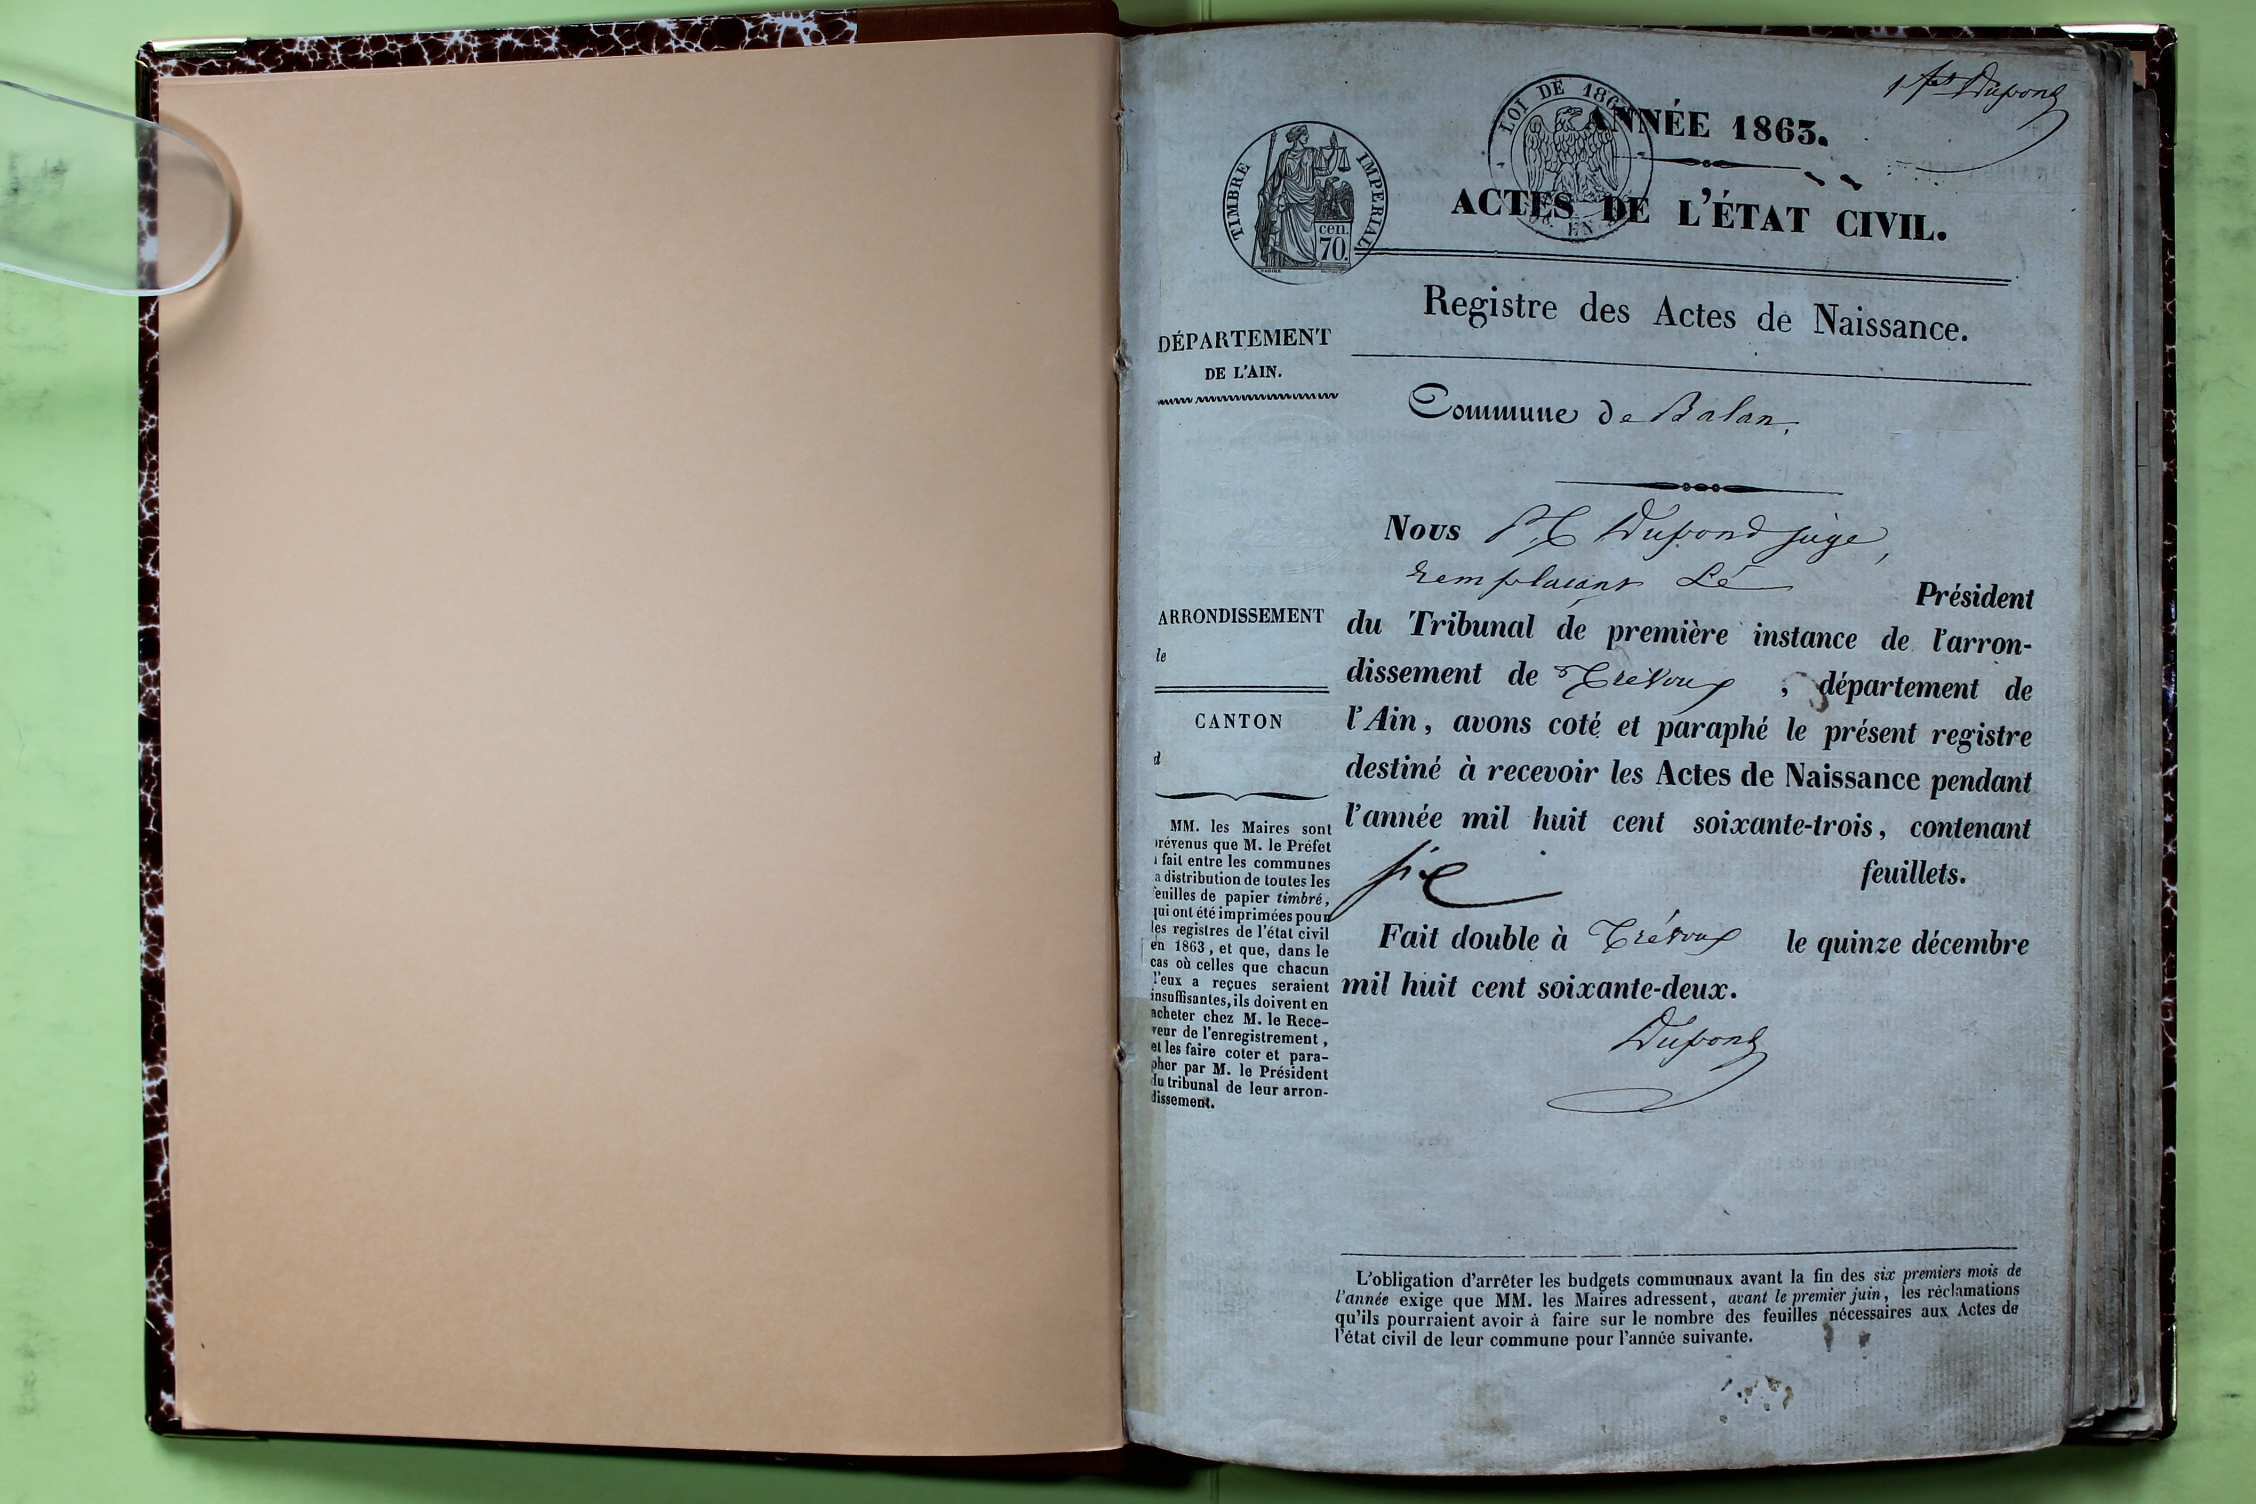 1er Dupond
LOI DE 186
ANNÉE 1863.
TIMBRE IMPÉRIAL
cen.
70.
ACTES DE L'ÉTAT CIVIL.
EN
Registre des Actes de Naissance.
DÉPARTEMENT
DE L'AIN.
Commune de Balan,
Nous Dupond juge,
remplaçant Lé Président
du Tribunal de première instance de l'arron-
dissement de Trévoux, département de
l'Ain, avons coté et paraphé le présent registre
destiné à recevoir les Actes de Naissance pendant
l'année mil huit cent soixante-trois, contenant
six feuillets.
Fait double à Trévoux le quinze décembre
mil huit cent soixante-deux.
Dupond
ARRONDISSEMENT
le
CANTON
d
MM. les Maires sont
révenus que M. le Préfet
fait entre les communes
a distribution de toutes les
feuilles de papier timbré,
qui ont été imprimées pour
les registres de l'état civil
en 1863, et que, dans le
cas où celles que chacun
l'eux a reçues seraient
insuffisantes, ils doivent en
acheter chez M. le Rece-
veur de l'enregistrement,
et les faire coter et para-
pher par M. le Président
du tribunal de leur arron-
dissement.
L'obligation d'arrêter les budgets communaux avant la fin des six premiers mois de
l'année exige que MM. les Maires adressent, avant le premier juin, les réclamations
qu'ils pourraient avoir à faire sur le nombre des feuilles nécessaires aux Actes de
l'état civil de leur commune pour l'année suivante.